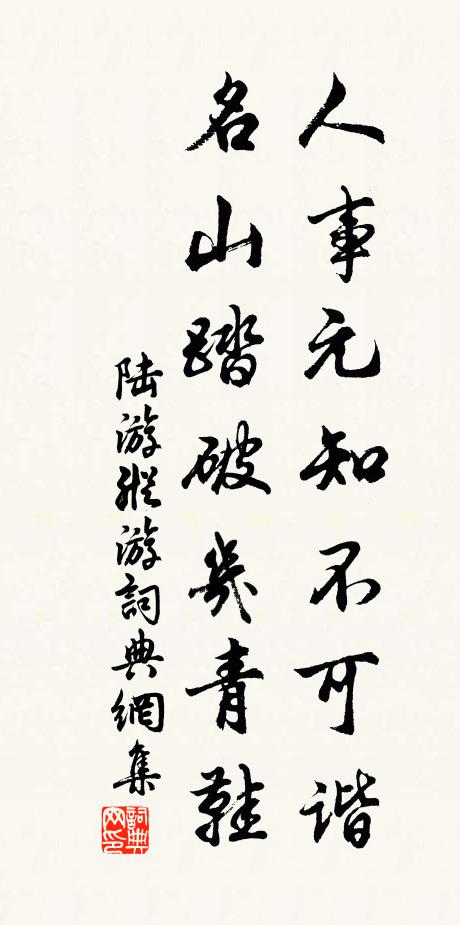 人事元知不可谐
名山踏破几青鞋
陆游纵游詞典網集
詞典网印